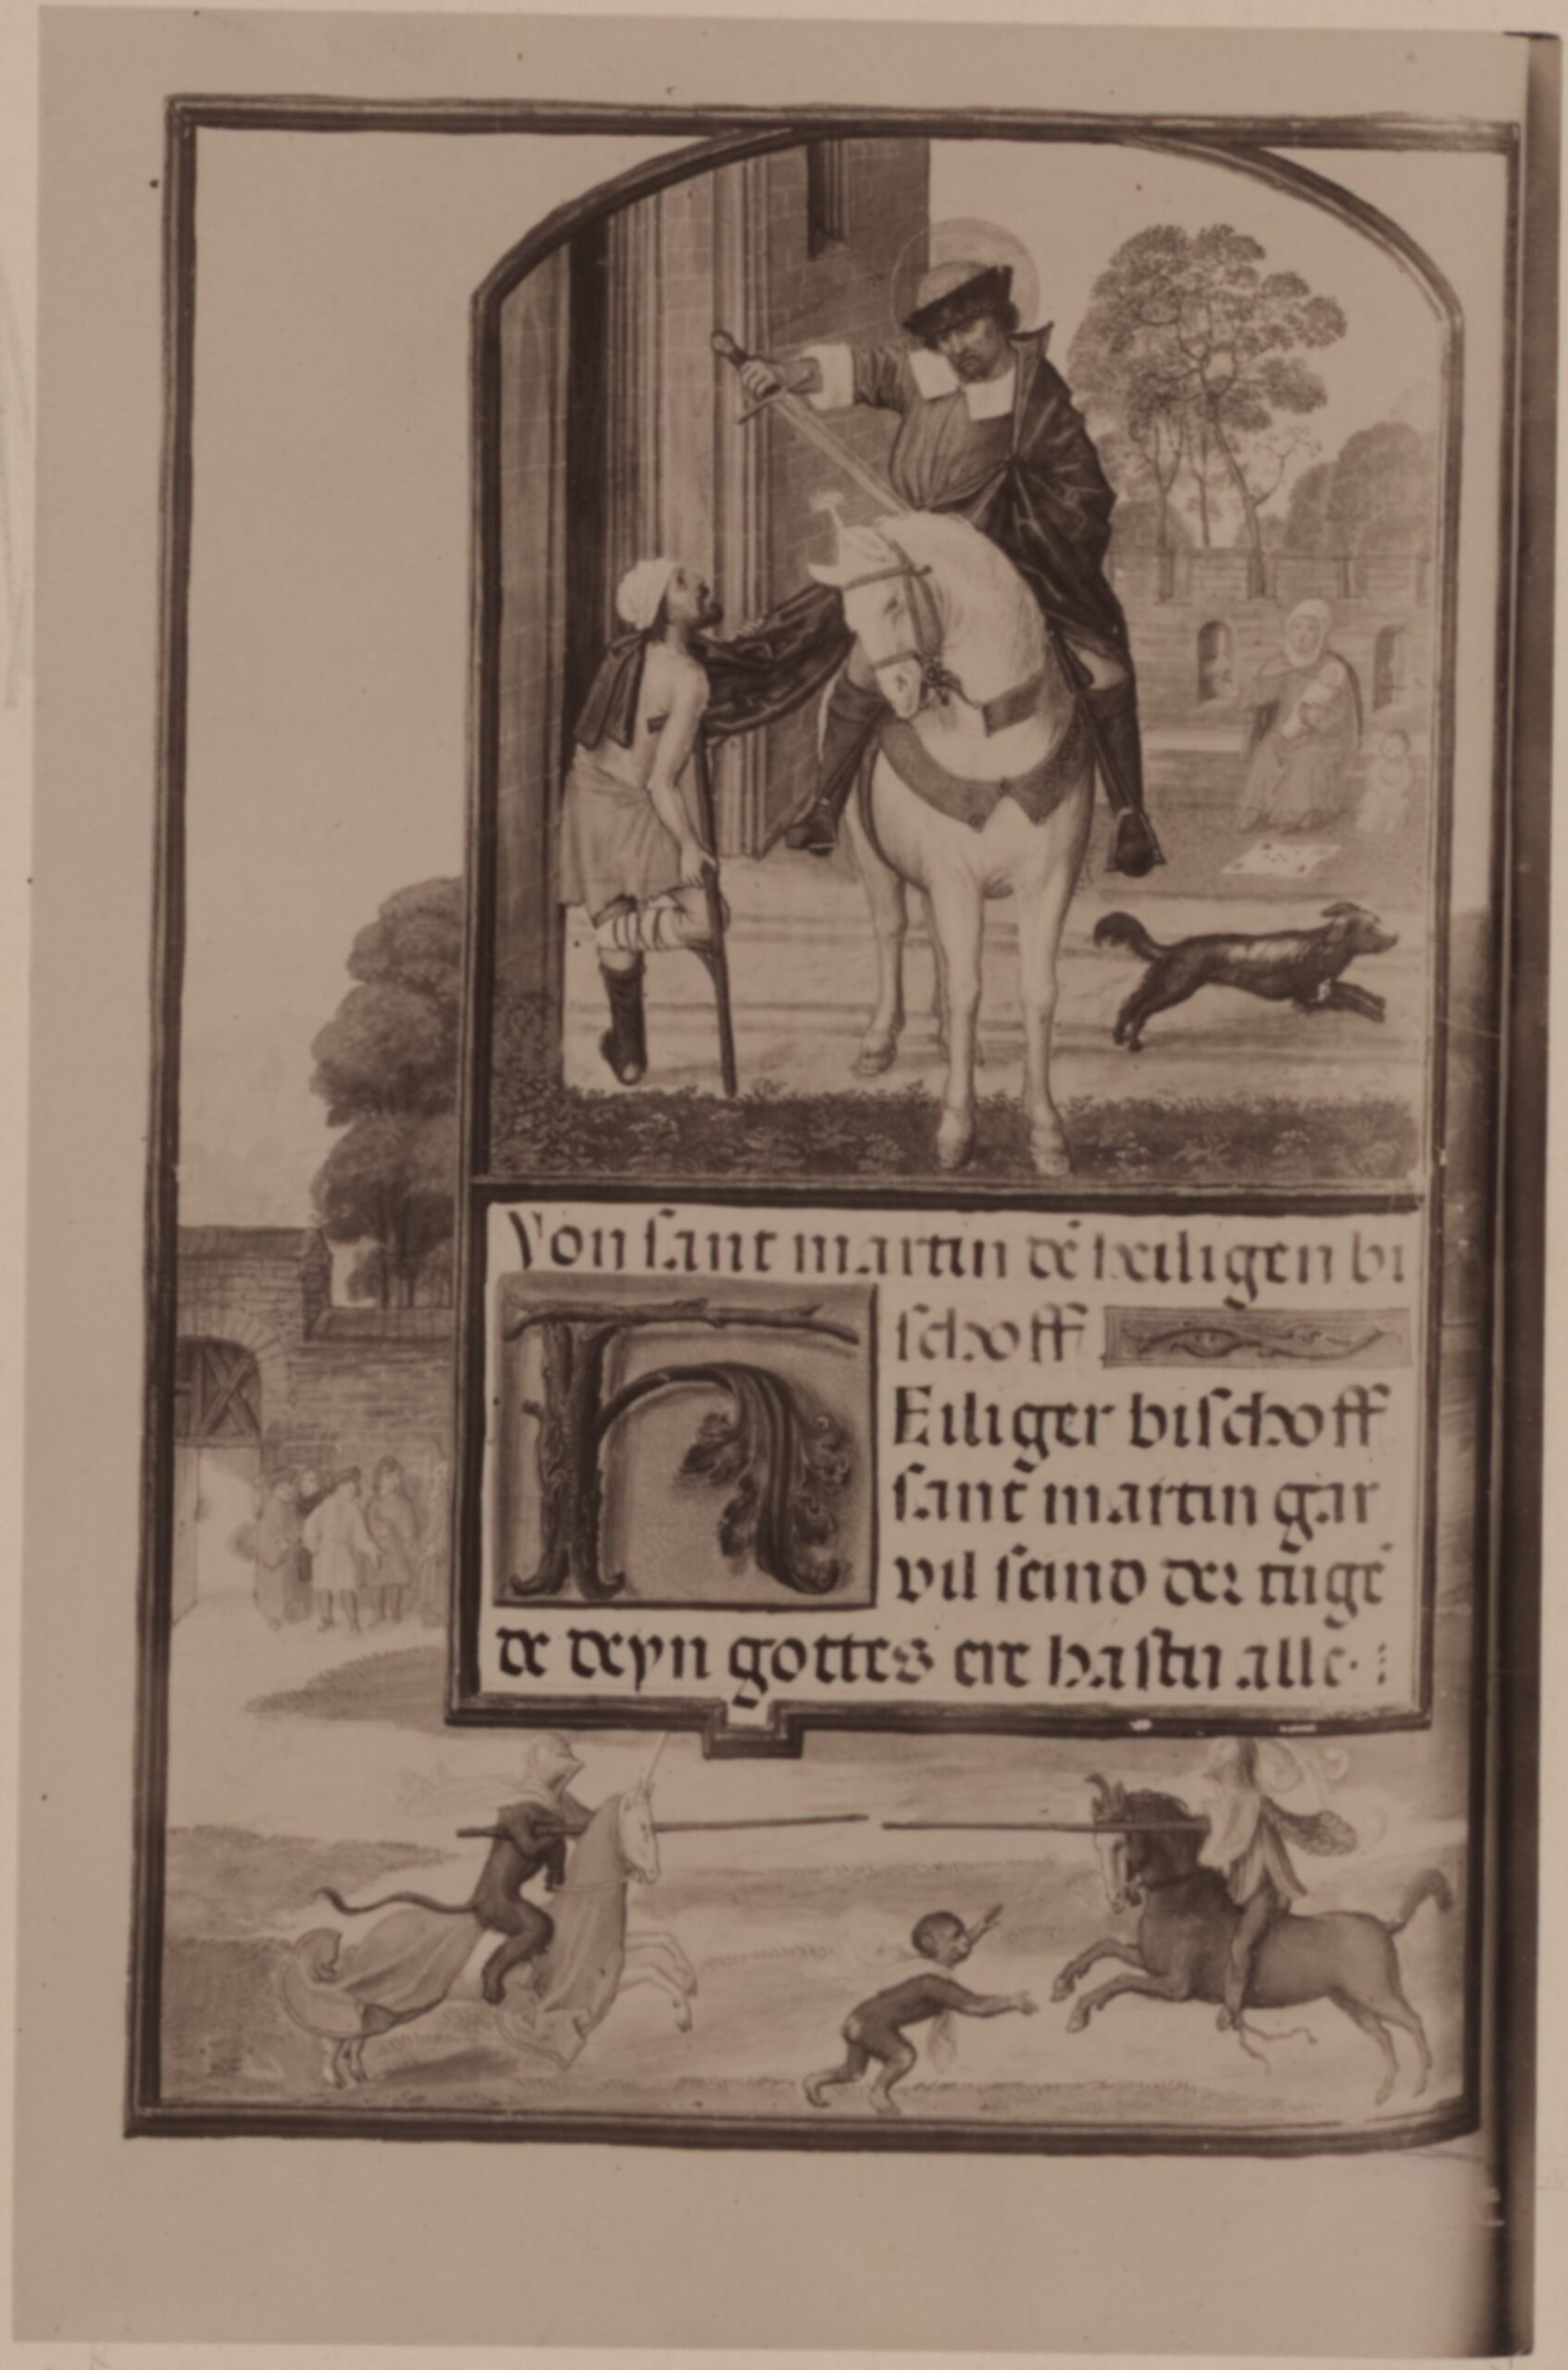 Von sant martin dē heiligen bi
schoff
HEiliger bischoff
sant martin gar
vil seind der tugē
de deyn gottes ere hastu alle